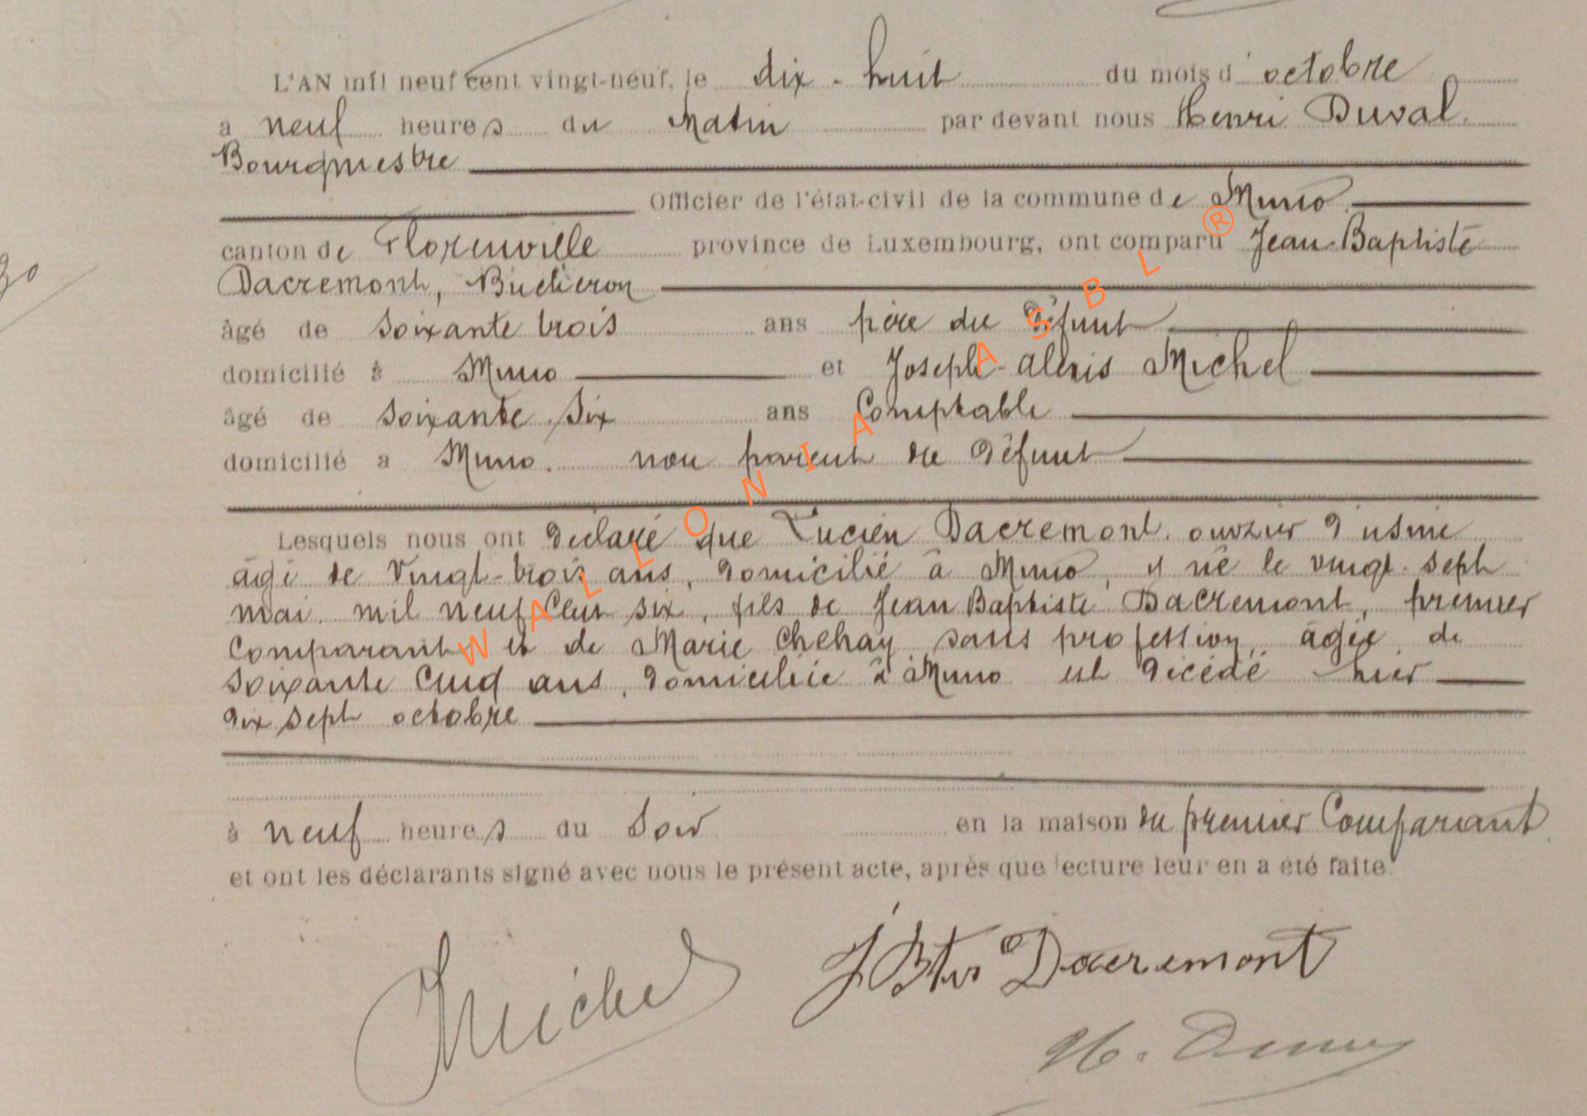 L'AN mil neuf cent vingt-neuf, le dix-huit du mois d'octobre
à neuf heures du Matin par devant nous Henri Duval.
Bourgmestre
Officier de l'état-civil de la commune de Muno
canton de Florenville province de Luxembourg, ont comparu Jean-Baptiste
Dacremont, Bucheron
âgé de soixante trois ans père du défunt
domicilié à Muno et Joseph-Alexis Michel
âgé de soixante six ans Comptable
domicilié a Muno. non parent du défunt
Lesquels nous ont déclaré que Lucien Dacremont. ouvrier d'usine
âgé de vingt-trois ans, domicilié à Muno, y né le vingt-sept
mai mil neuf cent six, fils de Jean Baptiste Dacremont, premier
comparant et de Marie Chehay sans profession, âgée de
soixante cinq ans, domiciliée à Muno est décédé hier
dix sept octobre
à neuf heures du soir en la maison du premier Comparant
et ont les déclarants signé avec nous le présent acte, après que lecture leur en a été faite.
JMichel J Bte Dacremont
H. Duval
WALLONIA ASBL ®